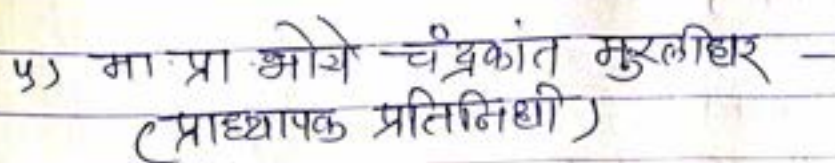 ५) मा. प्रा. भोये चंद्रकांत मुरलीधर –
(प्राध्यापक प्रतिनिधी)